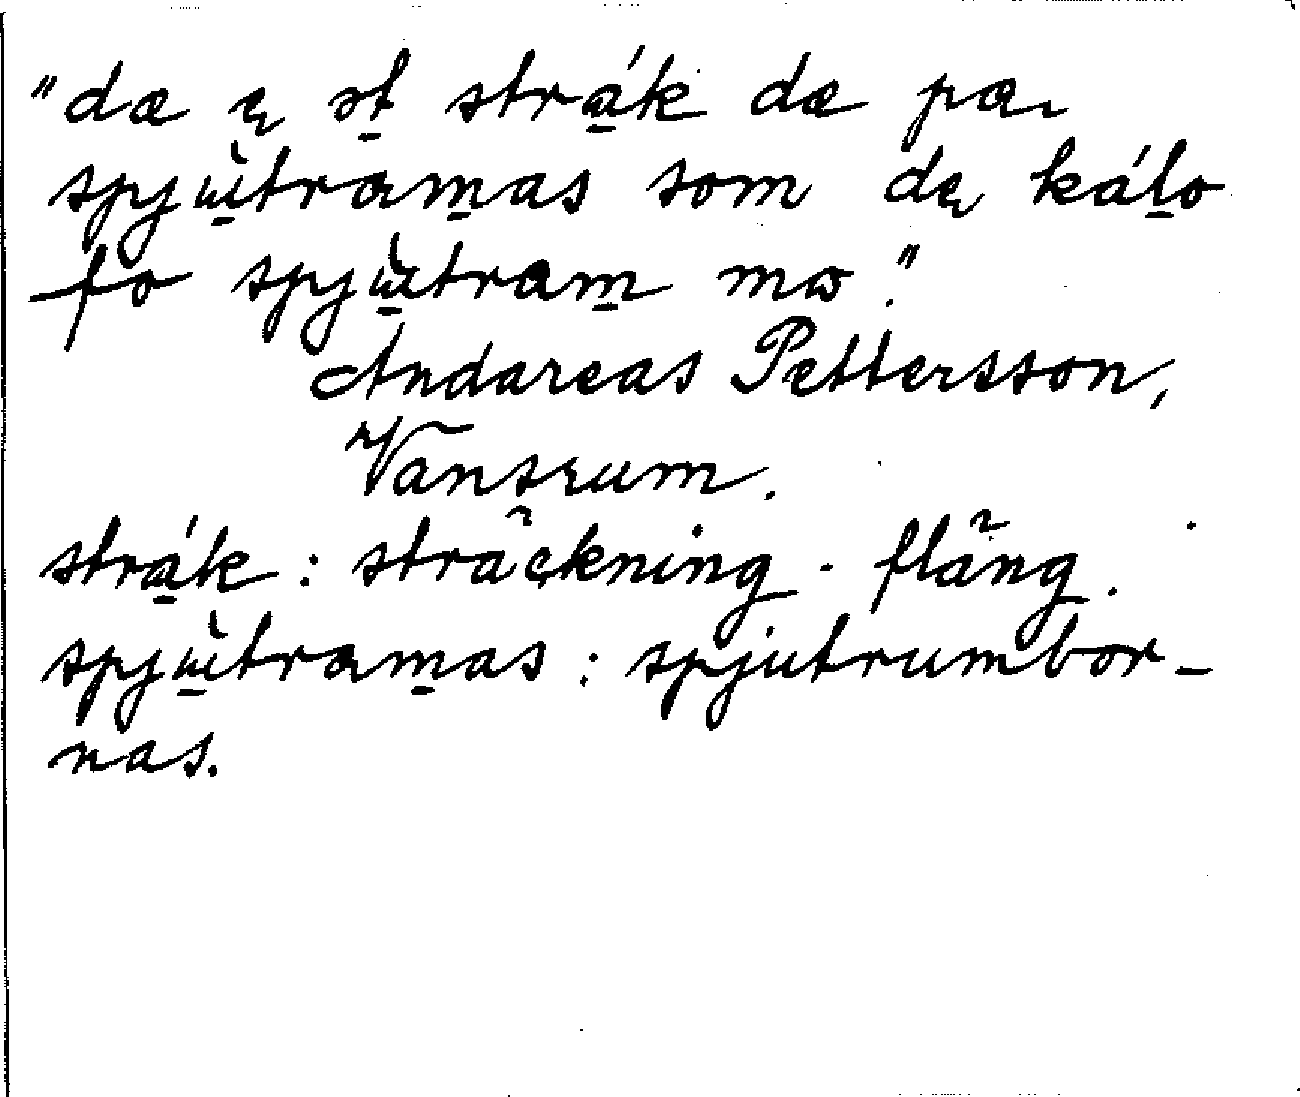 "dæ ę ət̠ strá̠k dæ pæ
spjɯ̠̀tram̠as som dę kál̠o
fo spjɯ̠̀tram̠ mω."
Andareas Pettersson,
Vansrum.
strá̠k: sträckning - fläng.
spjɯ̠̀tram̠as: spjutrumbor-
nas.